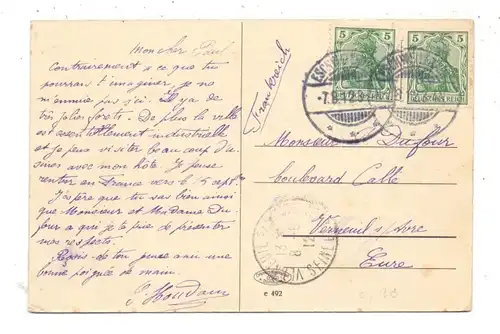 Mon cher Paul
Contrairement à ce que tu
pourrais t'imaginer, je ne
m'ennuie pas ici. Il y a de
très jolies forêts. De plus la ville
est essentiellement industrielle
et je peux visiter beaucoup d'u-
sines avec mon hôte. Je pense
rentrer en France vers le 5 sept.
J'espère que tu vas bien ainsi
que Monsieur et Madame Du-
four à qui je te prie de présenter
mes respects.
Reçois de ton jeune ami une
bonne poignée de main.
Houdain
Frankreich
5 5 5 5
DEUTSCHES REICH
ESCHWEILER
-7.8.12.
Monsieur Dufour
boulevard
Verneuil s/Avre
Eure
e 492